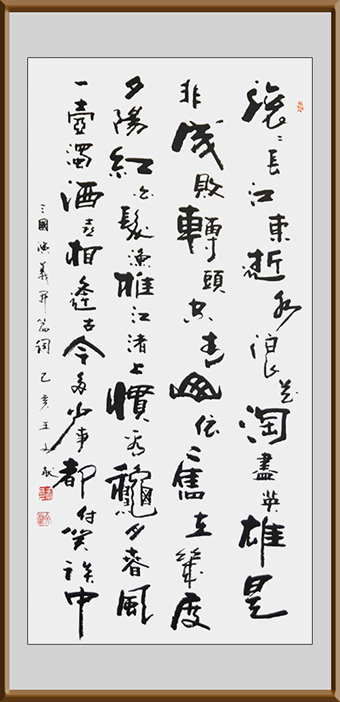 滾〻長江東逝水浪花淘盡英雄是
非成敗轉頭空青山依舊在幾度
夕陽紅白髮漁樵江渚上慣看龝月春風
一壺濁酒喜相逢古今多少事都付笑談中
三國演義開篇詞 己亥王